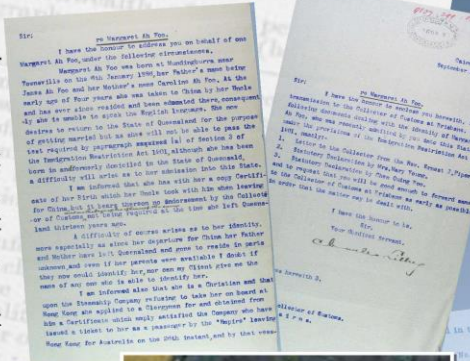 Sir:
re Margaret Ah Foo.
I have the honour to address you on behalf of one
Margaret Ah Foo, under the following circumstances.
Margaret Ah Foo was born at Hundingburra near
Townsville on the 6th January 1896, her Father's name being
James Ah Foo and her Mother's name Caroline Ah Foo. At the
early age of Four years she was taken to China by her Uncle
and has ever since resided and been educated there, consequent
ly she is unable to speak the English language. She now
desires to return to the State of Queensland for the purpose
of getting married but as she will not be able to pass the
test required by paragraph (a) of Section 3 of
the Immigration Restriction Act 1901, although she has been
born in and formerly domiciled in the State of Queensland,
a difficulty will arise as to her admission into this State.
I am informed that she has with her a copy Certifi-
cate of her Birth which her Uncle took with him when leaving
for China but it bears thereon no Endorsement by the Collect
-or of Customs, not being required at the time she left Queens-
land thirteen years ago.
A difficulty of course arises as to her identity,
more especially as since her departure for China her Father
and Mother have left Queensland and gone to reside in parts
unknown, and even if her parents were available I doubt if
they now could identify her, nor can my Client give me the
name of any one who is able to identify her.
I am informed also that she is a Christian and that
upon the Steamship Company refusing to take her on board at
Hong Kong she applied to a Clergyman for and obtained from
him a Certificate which empty satisfied the Company who have
issued a ticket to her as a passenger by the "Empire" leaving
Hong Kong for Australia on the 26th instant, and by that
Sir:
re Margaret Ah Foo.
I have the honour to enclose you herewith,
transmission to the Collector of Customs at Brisbane,
following documents dealing with the identity of Margaret
Ah Foo, who was recently admitted by you into this State
under the provisions of the Immigration Restriction Act
1901, namely:
1. Letter to the Collector from the Rev. Ernest
2. Statutory Declaration by Mrs. Mary Young.
3. Statutory Declaration by Chun
and to request that you will be good enough to forward same
to the Collector of Customs at Brisbane as early as possible
in order that the matter may be dealt with.
I have the honour to be,
Sir,
Your Obedient Servant,
herewith 3.
Collector of Customs,